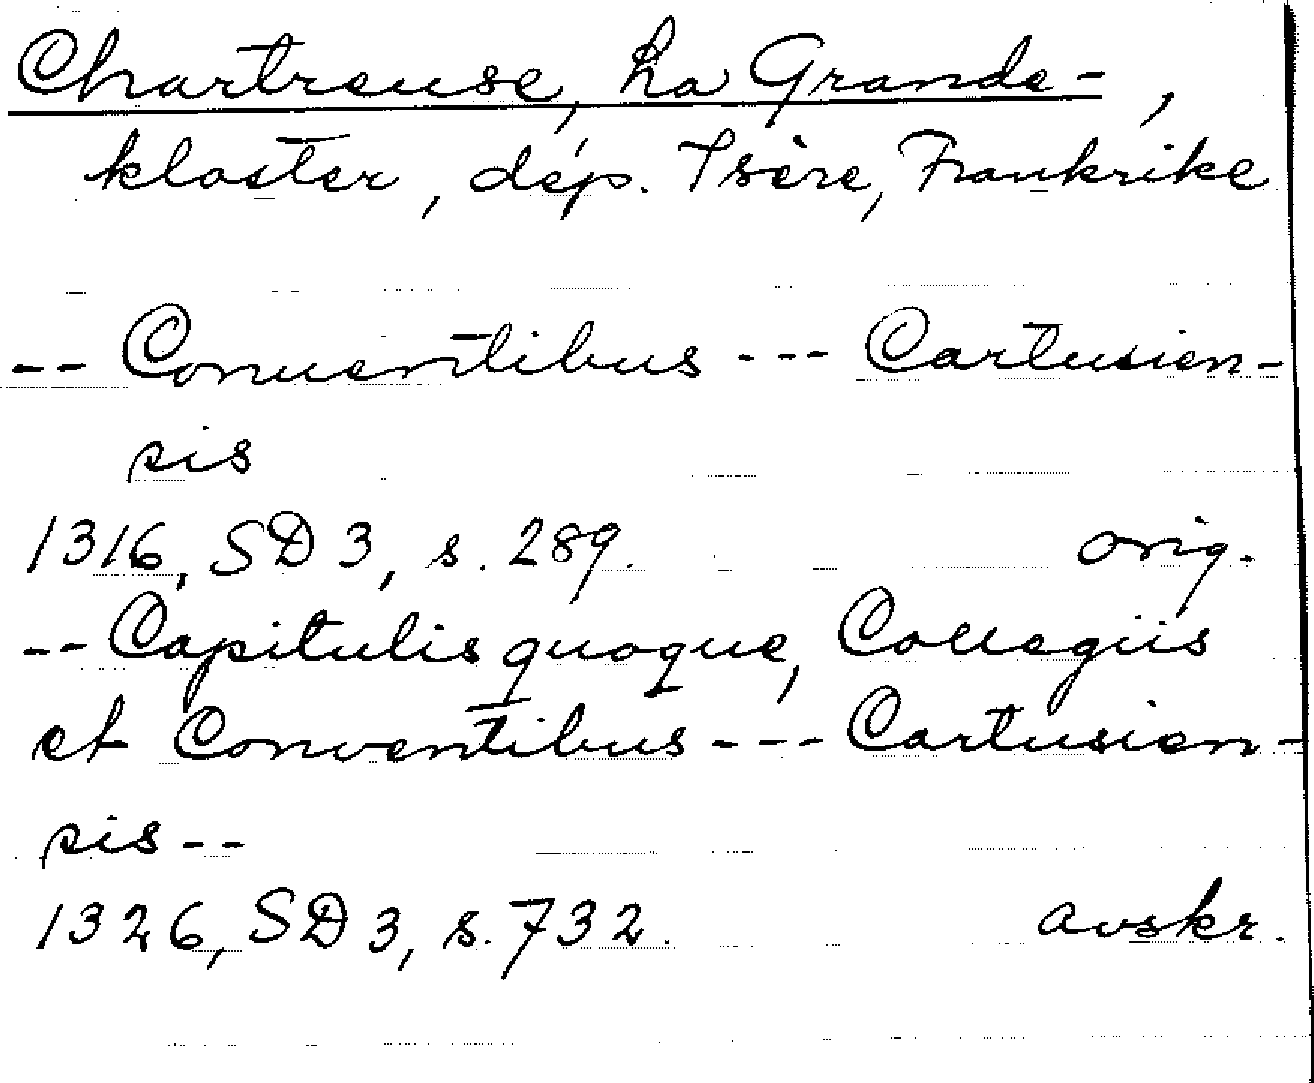 Chartreuse, La Grande-,
kloster, dép. Isère, Frankrike
-- Conuentibus --- Cartusien-
sis
1316, SD 3, s. 289. orig.
-- Capitulis quoque, Collegiis
et Conventibus --- Cartusien-
sis --
1326, SD 3, s. 732. avskr.